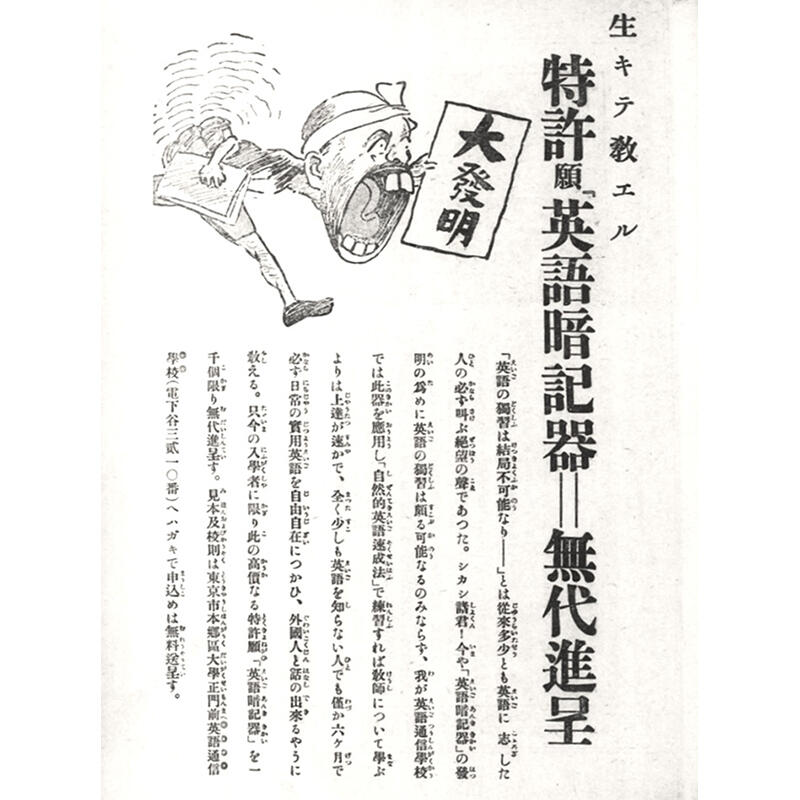 生キテ教エル
特許願「英語暗記器」＝無代進呈
大發明
「英語の獨習は結局不可能なり――」とは從來多少とも英語に志した
人の必ず叫ぶ絕望の聲であつた。シカシ諸君！今や「英語暗記器」の發
明の爲めに英語の獨習は頗る可能なるのみならず、我が英語通信學校
では此器を應用し「自然的英語速成法」で練習すれば敎師について學ぶ
よりは上達が速かで、全く少しも英語を知らない人でも僅か六ヶ月で
必ず日常の實用英語を自由自在につかひ、外國人と話の出來るやうに
敎える。只今の入學者に限り此の高價なる特許願「英語暗記器」を一
千個限り無代進呈す。見本及校則は東京市本鄕區大學正門前英語通信
學校（電下谷三貳一〇番）へハガキで申込めは無料送呈す。